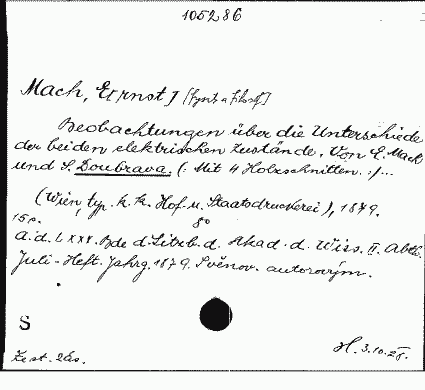 105286
Mach, Ernst J [fysik a filosof]
Beobachtungen über die Unterschiede
der beiden elektrischen Zustände. Von E. Mach
und S. Doubrava. (: Mit 4 Holzschnitten. :) ...
(Wien, typ. k. k. Hof u. Staatsdruckerei), 1879.
15 s. 8°
A. d. LXXX. Bde d. Sitzb. d. Akad. d. Wiss. II. Abth.
Juli-Heft. Jahrg. 1879. S věnov. autorovým.
S
H. 3.10.25.